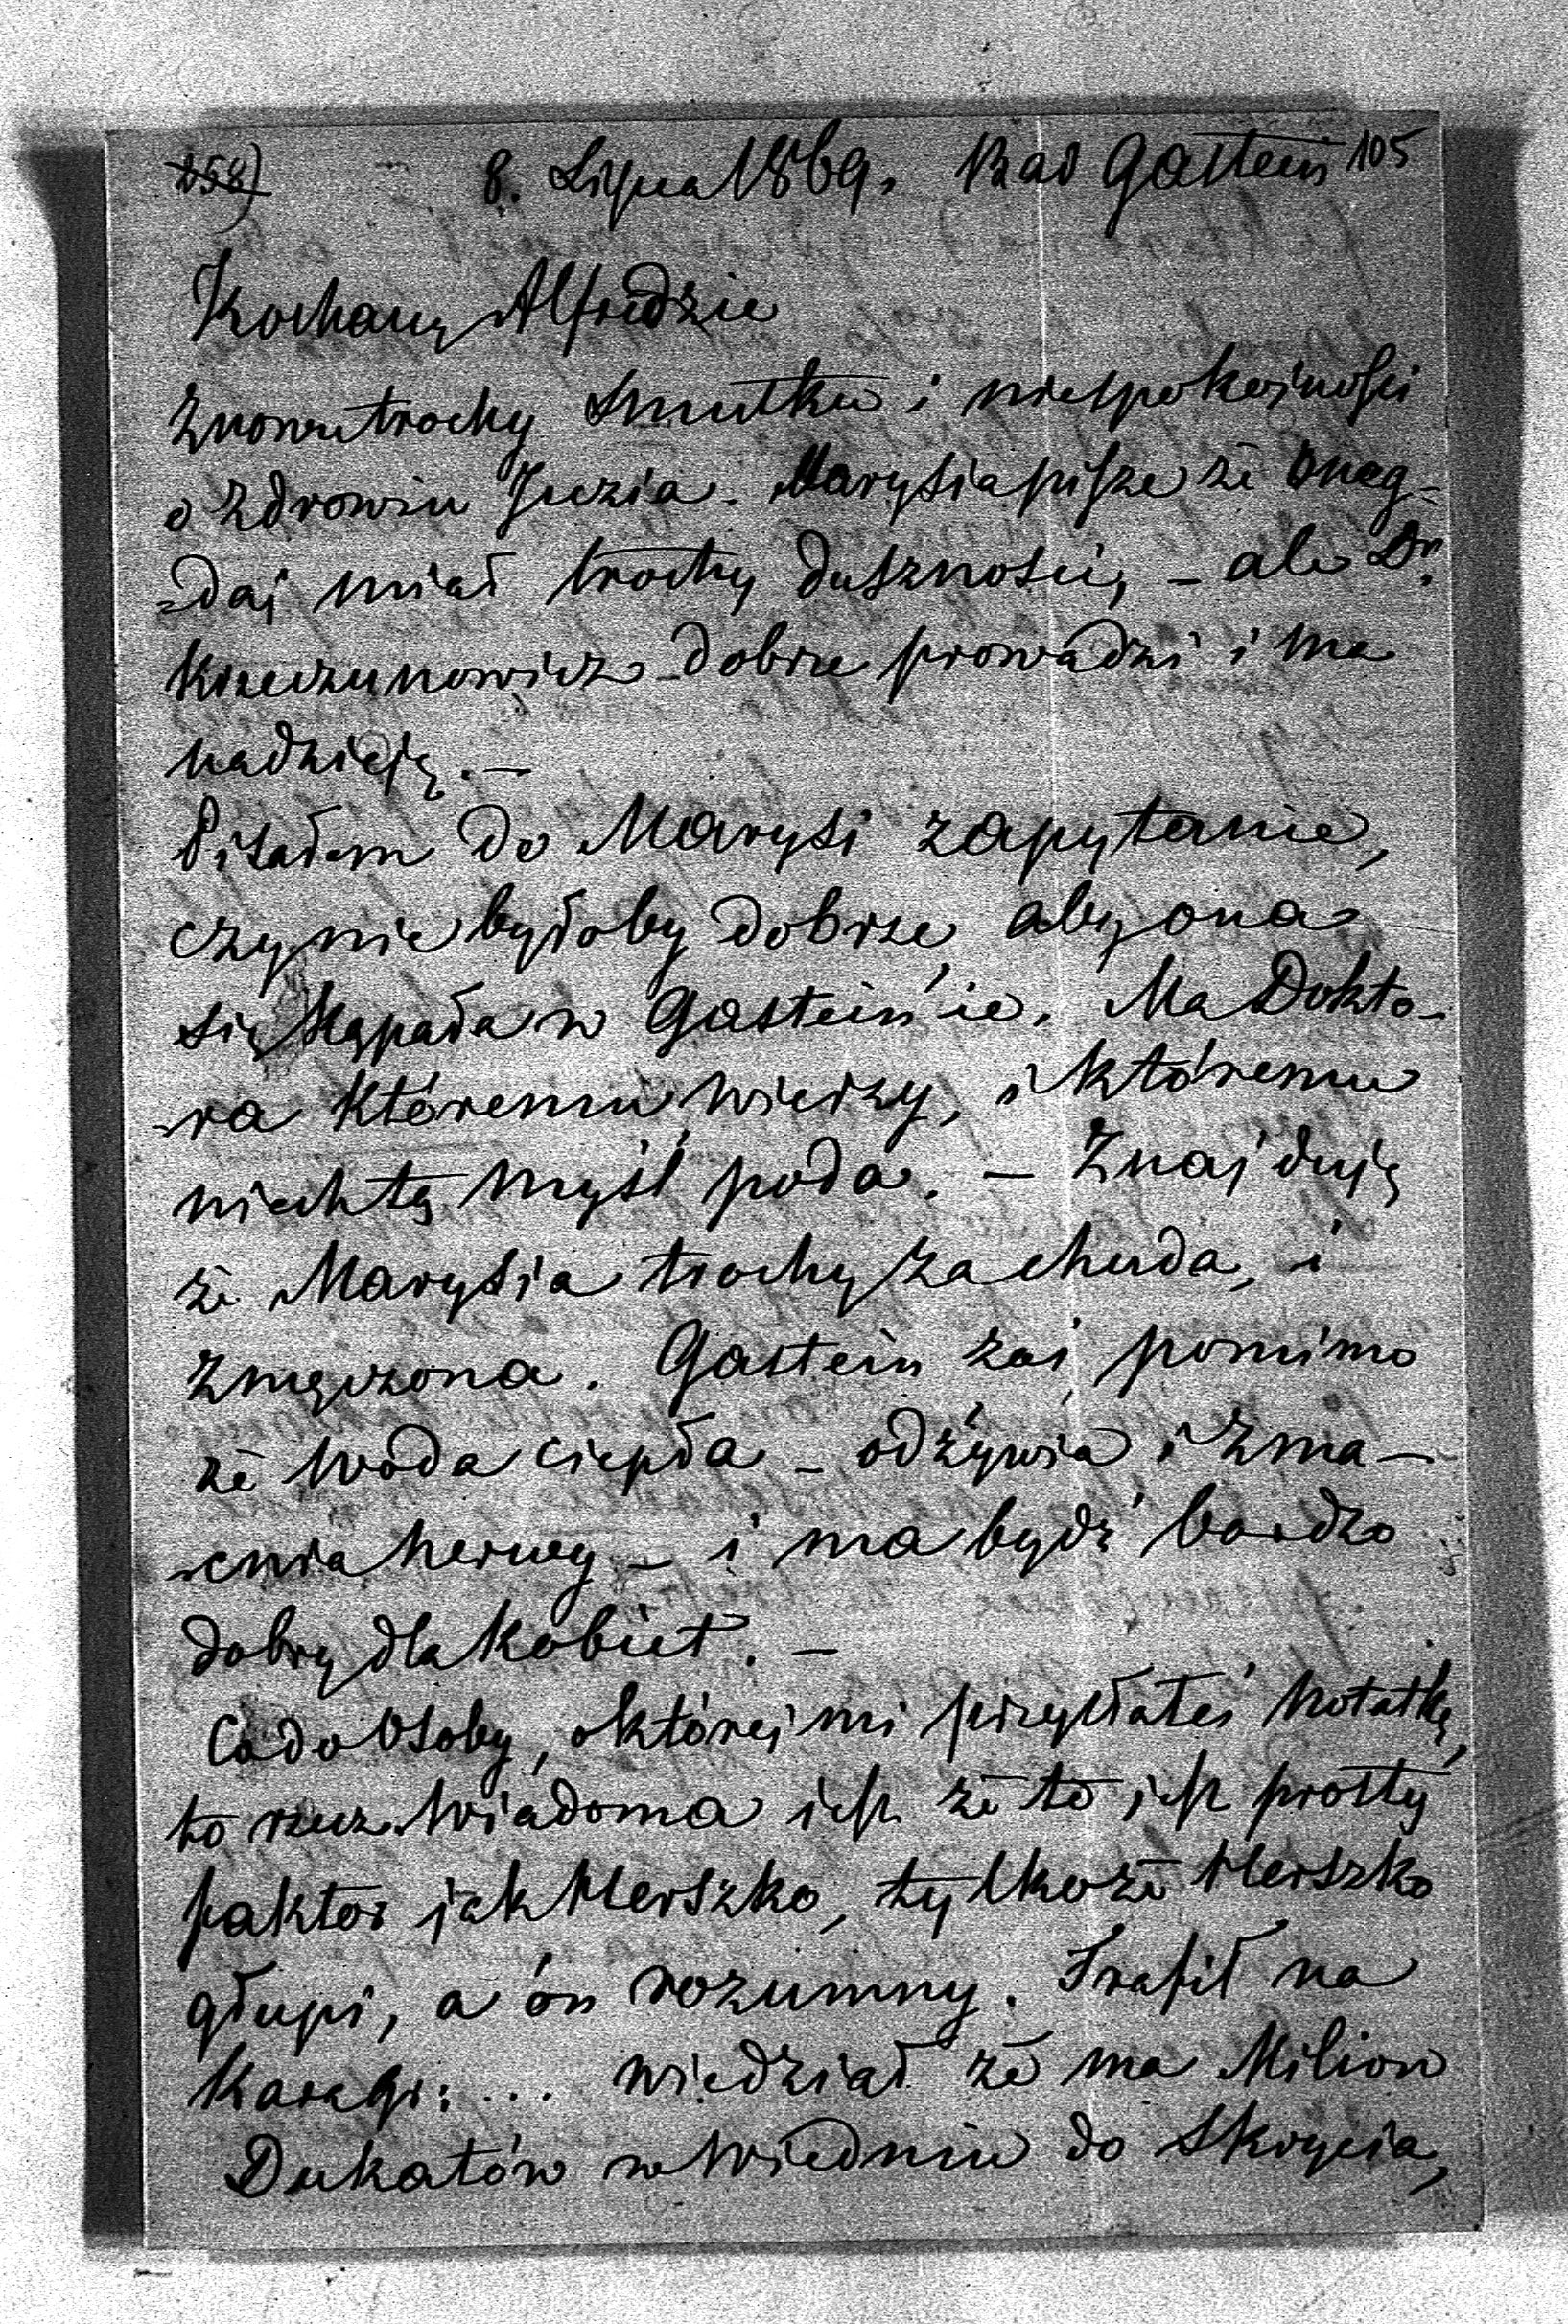 258) 8. Lipca 1869. Bad Gastein 105
Kochany Alfredzie
Znowu trochę smutku i niespokojności
o zdrowiu Juzia. Marysia pisze że oneg-
-daj miał trochę duszności, – ale Dr.
Krzeczunowicz dobrze prowadzi i ma
nadzieję. –
Pisałem do Marysi zapytanie,
czy nie byłoby dobrze, aby ona
się kąpała w Gastein'ie. Ma Dokto-
-ra któremu wierzy, i któremu
niech tę myśl poda. – Znajduję
że Marysia trochę za chuda, i
zmęczona. Gastein zaś, pomimo
że woda ciepła – odżywia i zma-
-cnia nerwy – i ma bydź bardzo
dobry dla kobiet. –
Co do Osoby, o której mi przysłałeś notatkę,
to rzecz wiadoma jest że to jest prosty
faktor jak Herszko, tylko że Herszko
głupi, a ón rozumny. Trafił na
Karagi: ... wiedział że ma Milion
Dukatów w Wiedniu do skrycia,